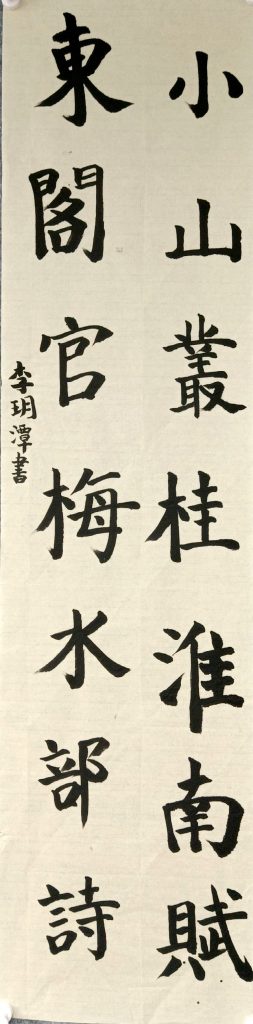 小山叢桂淮南賦
東閣官梅水部詩
李玥潭書